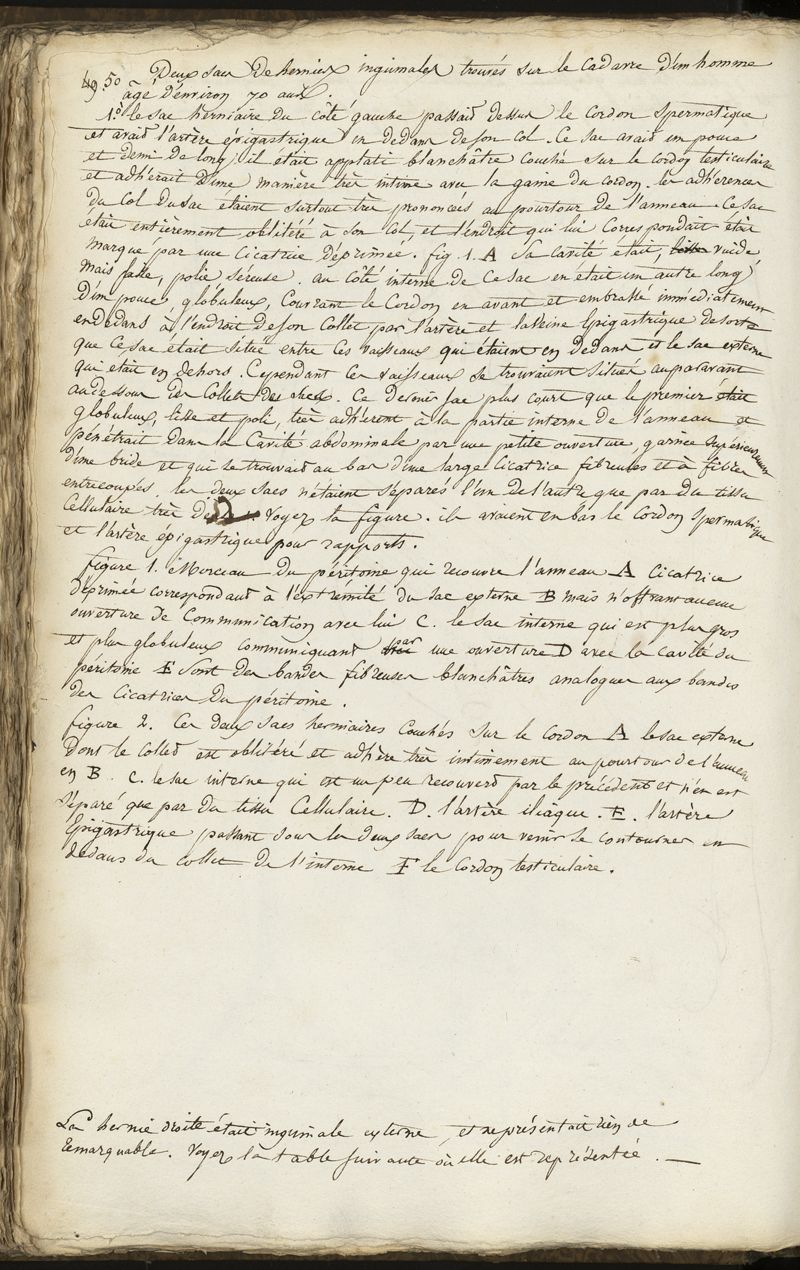 49.50 Deux sacs De hernies inguinales trouvés sur le Cadavre D'un homme
agé D'environ 70 ans.
1o le sac herniaire Du côté gauche passait Dessus le Cordon Spermatique
et avait l'artère épigastrique en Dedans De son Col. Ce sac avait un pouce
et Demi De long, il était applati blanchâtre Couché sur le Cordon testiculaire
et adhérait D'une manière très intime avec la gaine du Cordon. les adhérences
Du Col Du sac étaient surtout très prononcées au pourtour De l'anneau. Ce sac
était entièrement oblitéré à son Col, et l'endroit qui lui Correspondait était
marqué par une Cicatrice Déprimée. fig. 1. A Sa Cavité était, vuide,
mais fasse, polie séreuse. au côté interne De Ce sac en était un autre long
D'un pouce, globuleux, Couvrant le Cordon en avant et embrassé immédiatement
en Dedans à l'endroit De son Collet par l'artère et la Veine Epigastrique De sorte
que Ce sac était situé entre Ces vaisseaux qui étaient en Dedans et le sac externe
qui était en Dehors. Cependant Ces vaisseaux se trouvaient situés auparavant
au Dessous Des Collets Des sacs. Ce Dernier sac plus court que le premier était
globuleux, lisse et poli, très adhérent à la partie interne De l'anneau et
pénétrait Dans la Cavité abdominale par une petite ouverture, garnie supérieurement
D'une bride et qui se trouvait au bas D'une large Cicatrice fibreuse et à fibres
entrecoupés. les Deux sacs n'étaient séparés l'un De l'autre que par Du tissu
Cellulaire très voyez la figure. ils avaient en bas le Cordon Spermatique
et l'artère épigastrique pour rapports.
figure 1. Morceau Du péritoine qui recouvre l'anneau A Cicatrice
Déprimée Correspondant à l'extrémité Du sac externe B mais n'offrant aucune
ouverture De Communication avec lui C. le sac interne qui est plus gros
et plus globuleux communiquant par une ouverture D avec la cavité Du
péritoine E sont Des bandes fibreuses blanchâtres analogues aux bandes
Des Cicatrices Du péritoine.
figure 2. Ces Deux sacs herniaires Couchés sur le Cordon A le sac externe
Dont le Collet est oblitéré et adhère très intimement au pourtour De l'anneau
en B. C. le sac interne qui est un peu recouvert par le précédent et n'en est
séparé que par Du tissu Cellulaire. D. l'artère iliaque. E. l'artère
Epigastrique passant sous les Deux sacs pour venir se contourner en
Dedans Du Collet De l'interne F le Cordon testiculaire.
La hernie Droite était inguinale externe, et ne présentait rien De
remarquable. Voyez la table suivante où elle est représentée. —